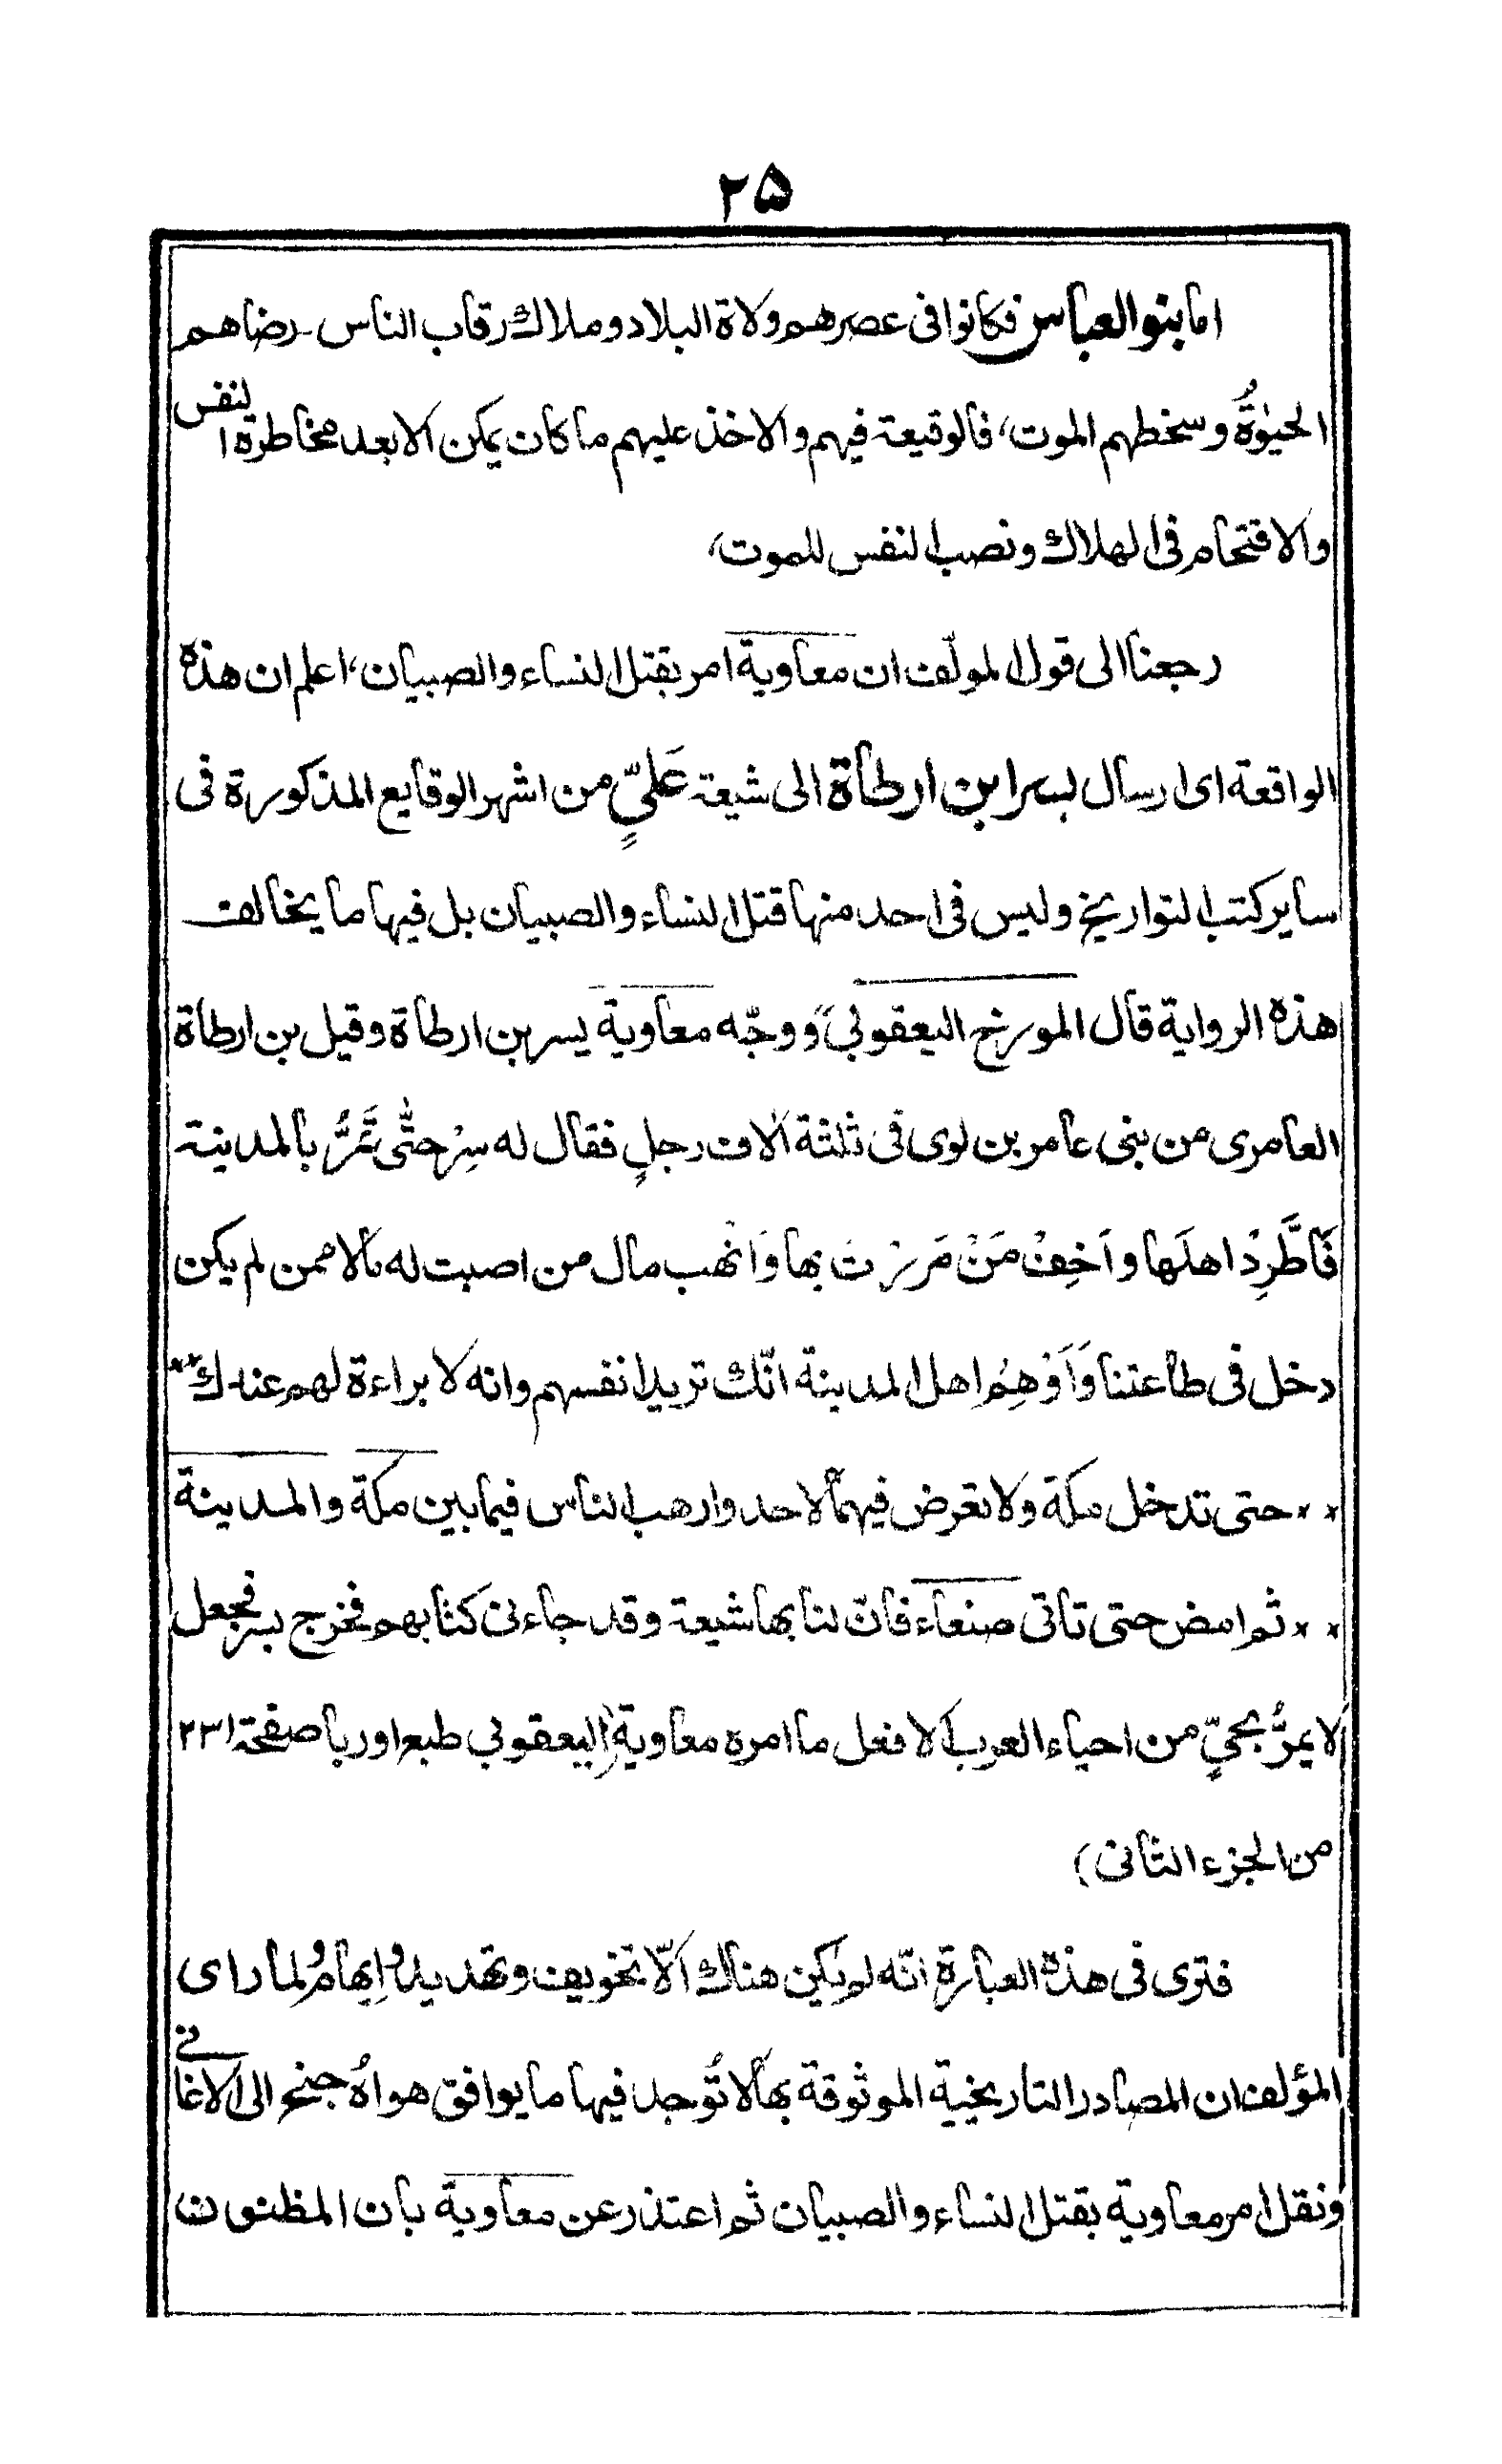 ٢۵
اما بنو العباس فكانوا فى عصرهم ولاة البلاد وملاك رقاب الناس۔ رضاهم
الحيٰوةُ وسخطهم الموت، فالوقيعة فيهم والاخذ عليهم ما كان يمكن الا بعد مخاطرة النفس
والاقتحام فى الهلاك ونصب النفس للموت،
رجعنا الى قول المولّف ان معاوية امر بقتل النساء والصبيان، اعلم ان هذه
الواقعة اى ارسال بسر ابن ارطاة الى شيعة عَلىٍّ من اشهر الوقايع المذكورة فى
ساير كتب التواريخ وليس فى احد منها قتل النساء والصبيان بل فيها ما يخالف
هذه الرواية قال المورخ اليعقوبى "ووجّه معاوية بسر بن ارطاة وقيل بن ارطاة
العامرى من بنى عامر بن لوى فى ثلثة الاف رجلٍ فقال له سِرْ حتّٰى تَمُرَّ بالمدينة
فَاطَّرِدْ اهلَها واَخِفْ مَنْ مَررْتَ بها وَانْهب مال من اصبت له مالا ممن لم يكن
دخل فى طاعتنا وَاَوْهِمْ اهل المدينة انّك تريد انفسهم وانه لا براءة لهم عندك **
** حتى تدخل مكة ولا تعرض فيها لاحد وارهب الناس فيما بين مكة والمدينة
** ثم امض حتى تاتى صنعاء فانّ لنا بها شيعة وقد جاءنى كتابهم فخرج بسر فجعل
لا يمرُّ بحىٍّ من احياء العرب الا فعل ما امره معاوية (اليعقوبى طبع اوربا صفحة ٢٣١
من الجزء الثانى)
فترى فى هذه العبارة انّه لم يكن هناك الّا تخويف وتهديد وايهامٌ ولما راى
المؤلف ان المصادر التاريخية الموثوقة بها لا تُوجد فيها ما يوافق هواهُ جنح الى الاغانى
ونقل امر معاوية بقتل النساء والصبيان ثم اعتذر عن معاوية بان المظنون